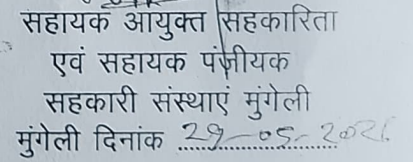 सहायक आयुक्त सहकारिता
एवं सहायक पंजीयक
सहकारी संस्थाएं मुंगेली
मुंगेली दिनांक 29-05-2021